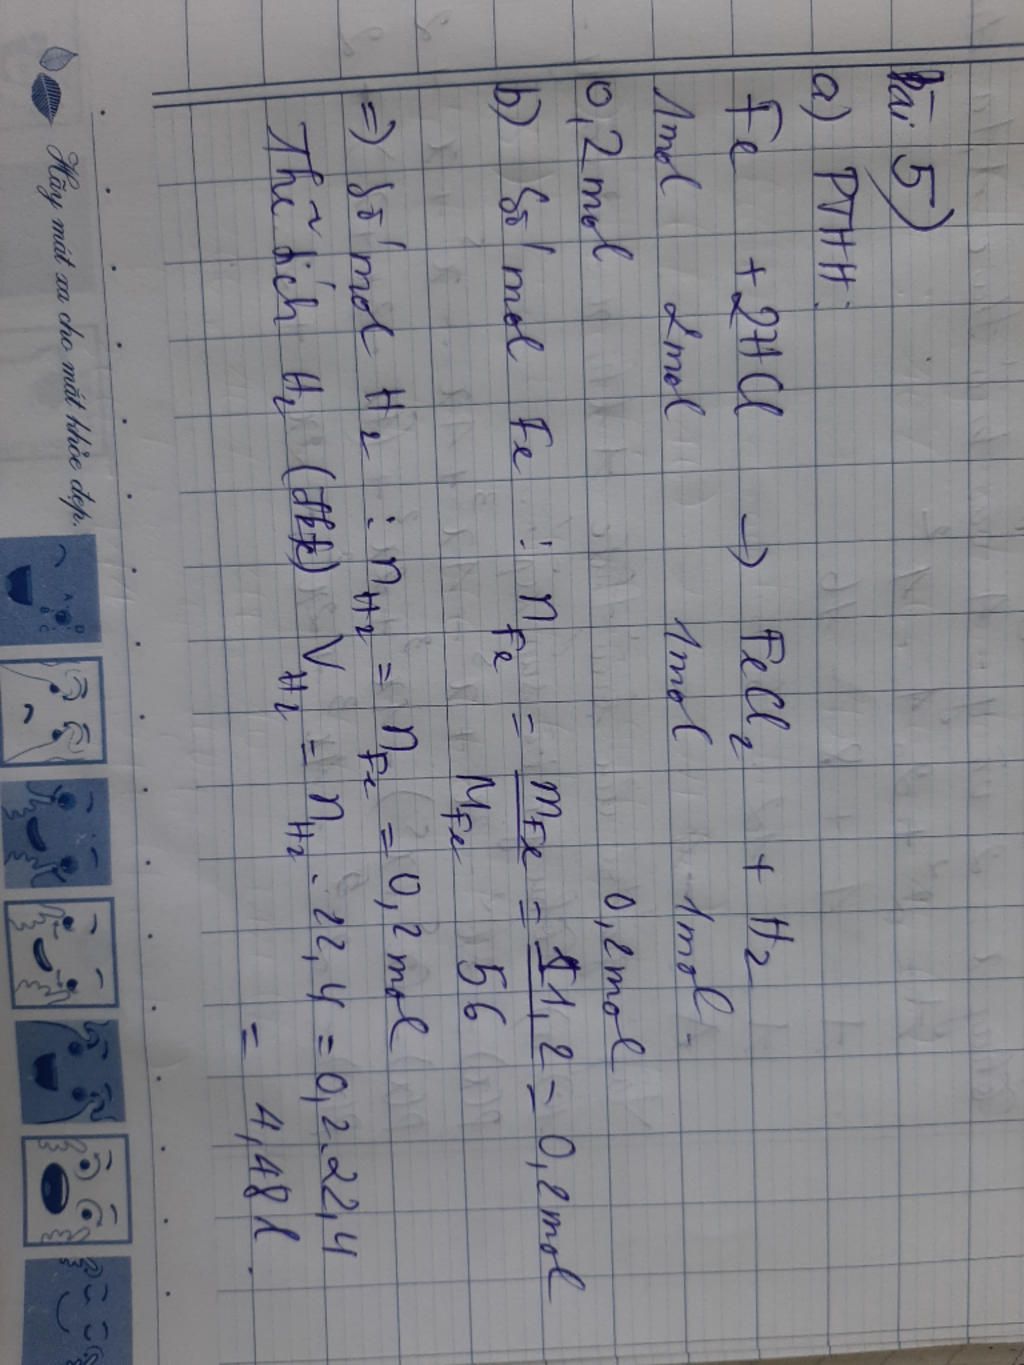 Bài 5)
a) PTHH:
Fe + 2HCl → FeCl2 + H2
1mol 2mol 1mol 1mol
0,2mol 0,2mol
b) Số mol Fe : nFe = mFe/MFe = 11,2/56 = 0,2mol
=> Số mol H2 : nH2 = nFe = 0,2mol
Thể tích H2 (đktc) VH2 = nH2 . 22,4 = 0,2.22,4
= 4,48l.
Hãy mát xa cho mắt khỏe đẹp.